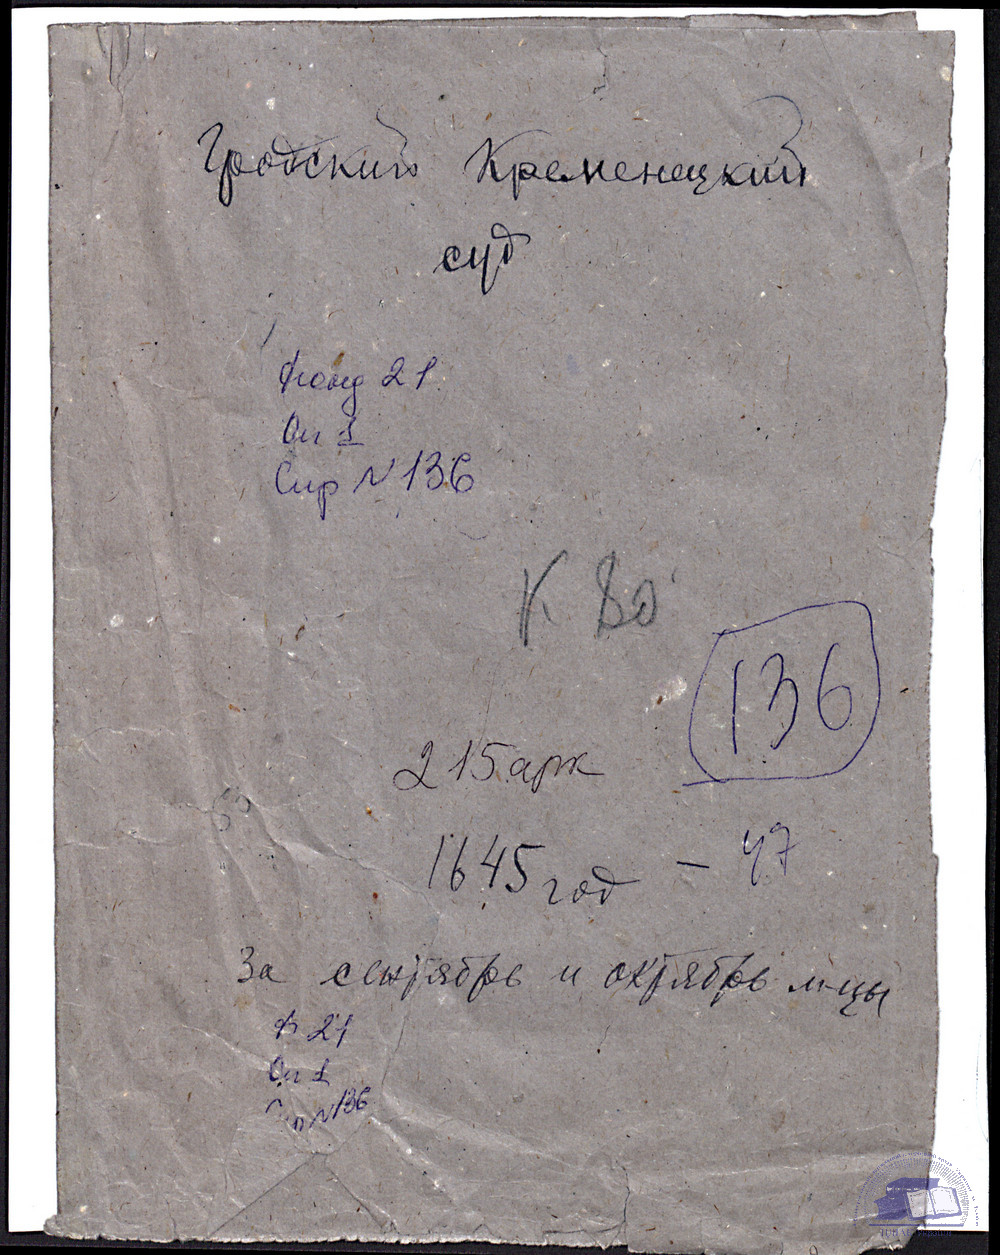 Гродский Кременецкий
суд
Фонд 21
Оп 1
Спр N 136
К 80
136
215 арк
1645 год - 47
За сентябрь и октябрь м-цы
Ф 21
Оп 1
N 136